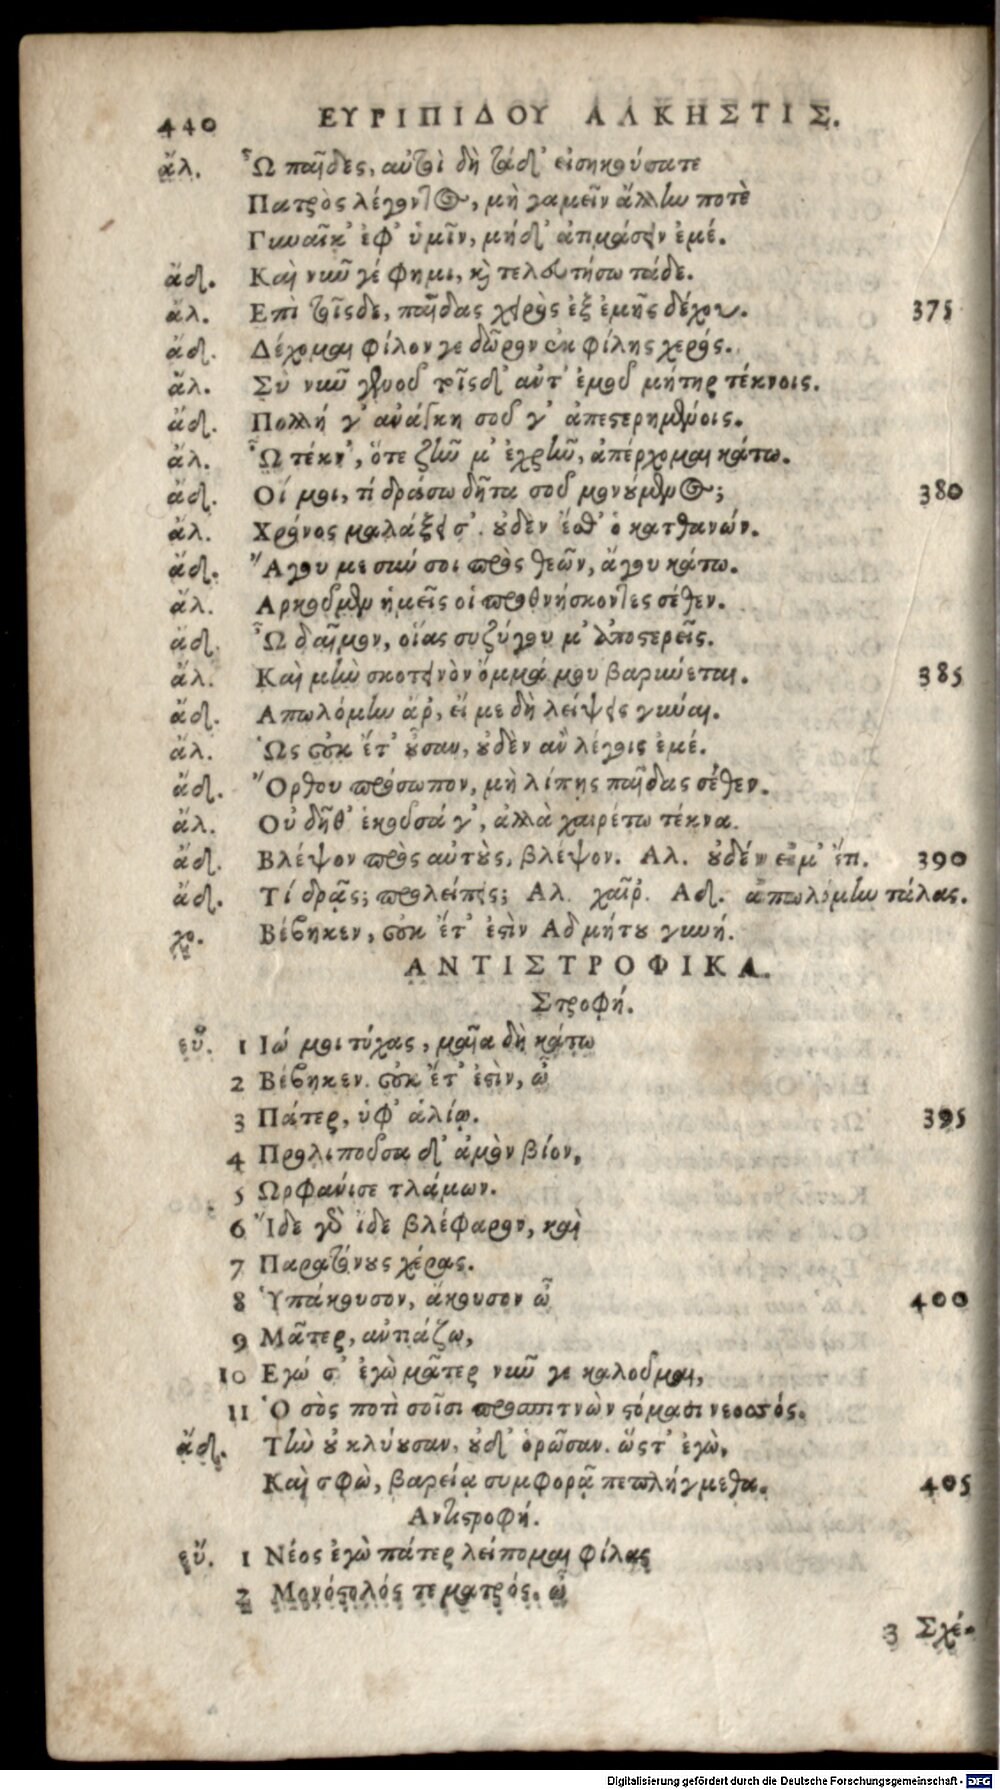 440 ΕΥΡΙΠΙΔΟΥ ΑΛΚΗΣΤΙΣ.
ἄλ. Ὦ παῖδες, αὐτοὶ δὴ τάδ' εἰσηκούσατε
Πατρὸς λέγοντος, μὴ γαμεῖν ἄλλην ποτὲ
Γυναῖκ' ἐφ' ὑμῖν, μήδ' ἀτιμάσειν ἐμέ.
ἄδ. Καὶ νῦν γέ φημι, καὶ τελευτήσω τάδε.
ἄλ. Επὶ τοῖςδε, παῖδας χειρὸς ἐξ ἐμῆς δέχου. 375
ἄδ. Δέχομαι φίλον γε δῶρον ἐκ φίλης χερός.
ἄλ. Σὺ νῦν γενοῦ τοῖςδ' αὐτ' ἐμοῦ μήτηρ τέκνοις.
ἄδ. Πολλή γ' ἀνάγκη σοῦ γ' ἀπεστερημένοις.
ἄλ. Ὦ τέκν', ὅτε ζῆν μ' ἐχρῆν, ἀπέρχομαι κάτω.
ἄδ. Οἴ μοι, τί δράσω δῆτα σοῦ μονούμενος; 380
ἄλ. Χρόνος μαλάξει σ'. οὐδὲν ἔσθ' ὁ κατθανών.
ἄδ. Ἄγου με σύν σοι πρὸς θεῶν, ἄγου κάτω.
ἄλ. Αρκοῦμεν ἡμεῖς οἱ προθνήσκοντες σέθεν.
ἄδ. Ὦ δαῖμον, οἵας συζύγου μ' ἀποστερεῖς.
ἄλ. Καὶ μὴν σκοτεινὸν ὄμμά μου βαρύνεται. 385
ἄδ. Απωλόμην ἄρ, εἴ με δὴ λείψεις γύναι.
ἄλ. Ὡς οὐκ ἔτ' οὖσαν, οὐδὲν ἂν λέγοις ἐμέ.
ἄδ. Ὄρθου πρόσωπον, μὴ λίπῃς παῖδας σέθεν.
ἄλ. Οὐ δῆθ' ἑκοῦσά γ', ἀλλὰ χαιρέτω τέκνα.
ἄδ. Βλέψον πρὸς αὐτοὺς, βλέψον. Αλ. οὐδέν εἰμ' ἔτι. 390
ἄδ. Τί δρᾷς; προλείπεις; Αλ. χαῖρ. Αδ. ἀπωλόμην τάλας.
χο. Βέβηκεν, οὐκ ἔτ' ἐστὶν Αδμήτου γυνή.
ΑΝΤΙΣΤΡΟΦΙΚΑ.
Στροφή.
εὔ. 1 Ιώ μοι τύχας, μαῖα δὴ κάτω
2 Βέβηκεν. οὐκ ἔτ' ἐστὶν, ὦ
3 Πάτερ, ὑφ' ἁλίῳ. 395
4 Προλιποῦσα δ' ἁμὸν βίον,
5 Ωρφάνισε τλάμων.
6 Ἴδε γὰρ ἴδε βλέφαρον, καὶ
7 Παρατόνους χέρας.
8 Ὑπάκουσον, ἄκουσον ὦ 400
9 Μᾶτερ, ἀντιάζω,
10 Εγώ σ' ἐγὼ μᾶτερ νῦν γε καλοῦμαι,
11 Ὁ σὸς ποτὶ σοῖσι προσπιτνὼν στόμασι νεοσσός.
ἄδ. Τὴν οὐ κλύουσαν, οὐδ' ὁρῶσαν. ὥστ' ἐγὼ,
Καὶ σφὼ, βαρείᾳ συμφορᾷ πεπλήγμεθα. 405
Αντιστροφή.
εὔ. 1 Νέος ἐγὼ πάτερ λείπομαι φίλας
2 Μονόστολός τε ματρός. ὦ
3 Σχέ-
Digitalisierung gefördert durch die Deutsche Forschungsgemeinschaft - DFG